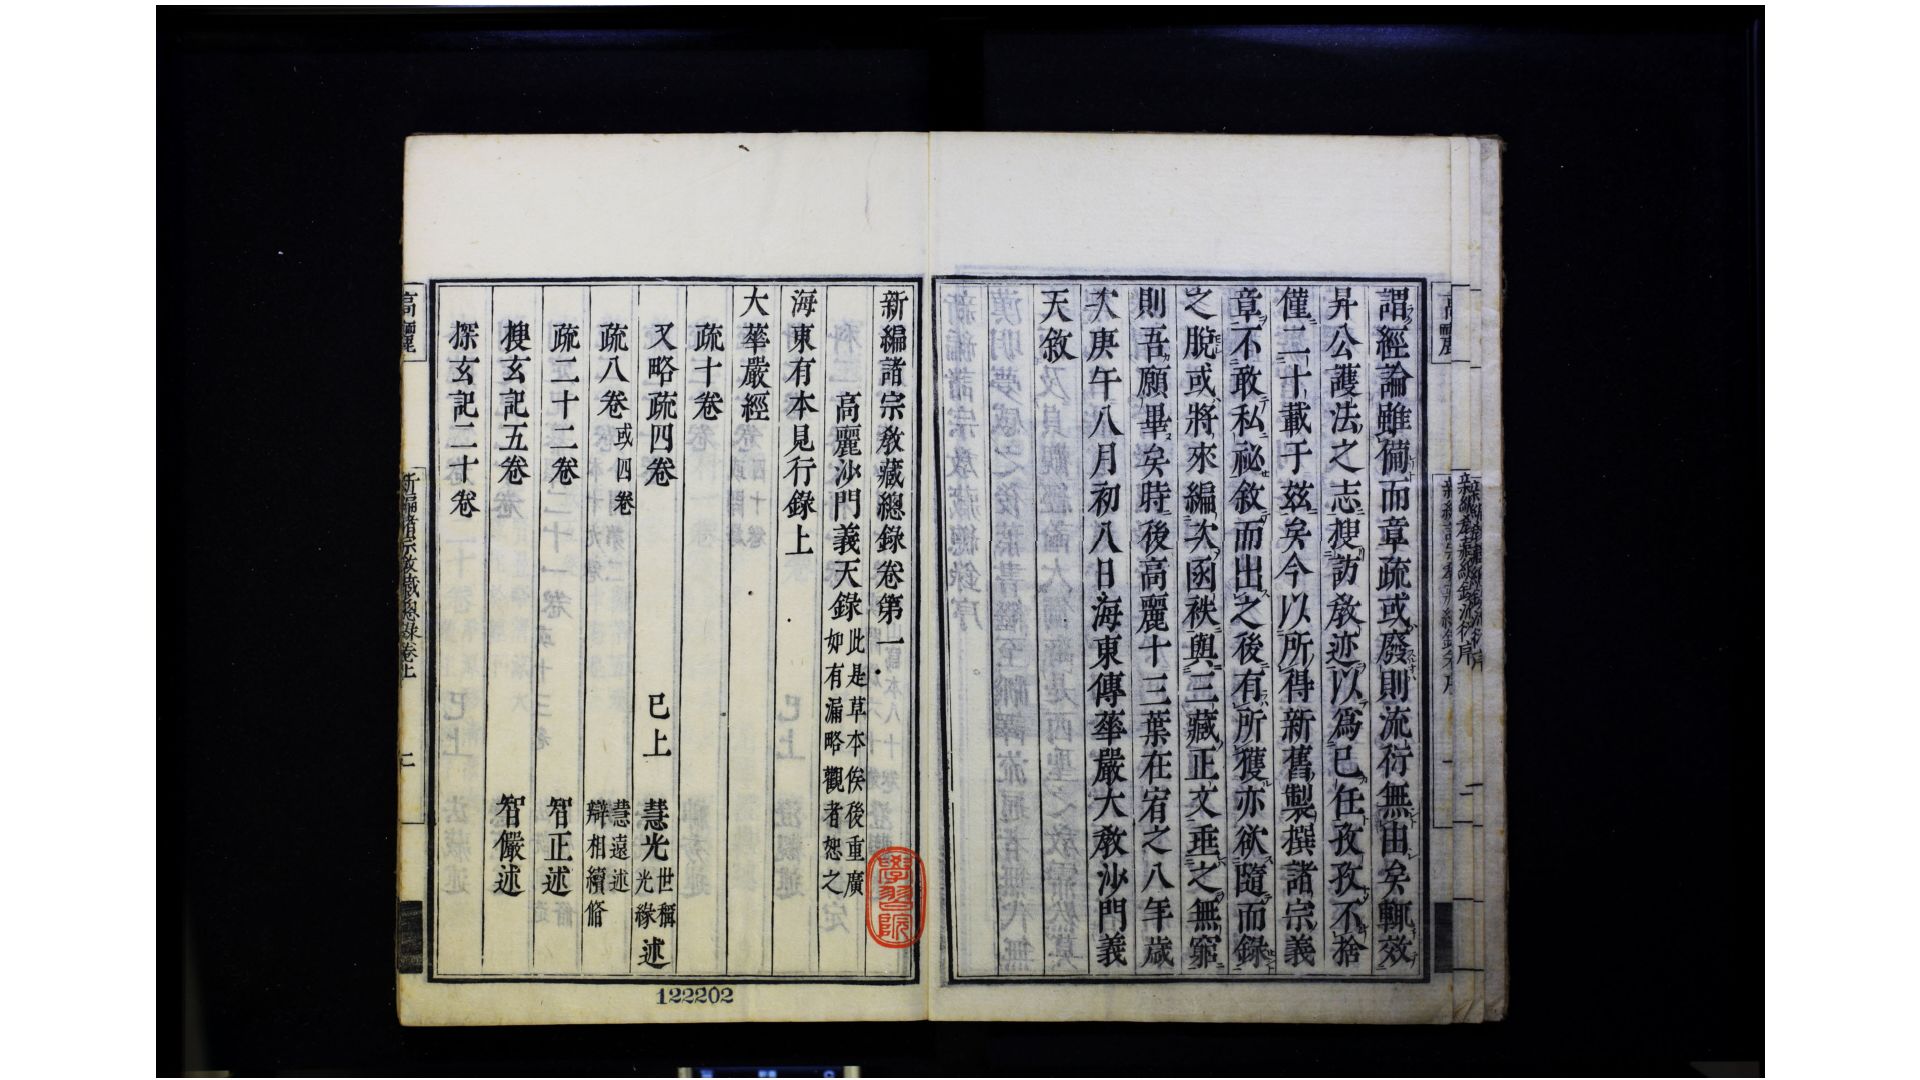 謂經論雖備而章疏或廢則流衍無由矣輒效
昇公護法之志搜訪敎迹以爲已任孜孜不捨
僅二十載于兹矣今以所得新舊製撰諸宗義
章不敢私祕敘而出之後有所獲亦欲隨而錄
之脫或將來編次函袟與三藏正文垂之無窮
則吾願畢矣時後高麗十三葉在宥之八年歲
次庚午八月初八日海東傳華嚴大敎沙門義
天敘
新編諸宗敎藏總錄卷第一
高麗沙門義天錄 此是草本俟後重廣
如有漏略觀者恕之
海東有本見行錄上
大華嚴經
疏十卷
又略疏四卷 已上 慧光 世稱
光緣 述
疏八卷 或四卷 慧遠述
辯相續脩
疏二十二卷 智正述
搜玄記五卷 智儼述
探玄記二十卷
學習院
122202
高麗
新編諸宗敎藏總錄卷上
二